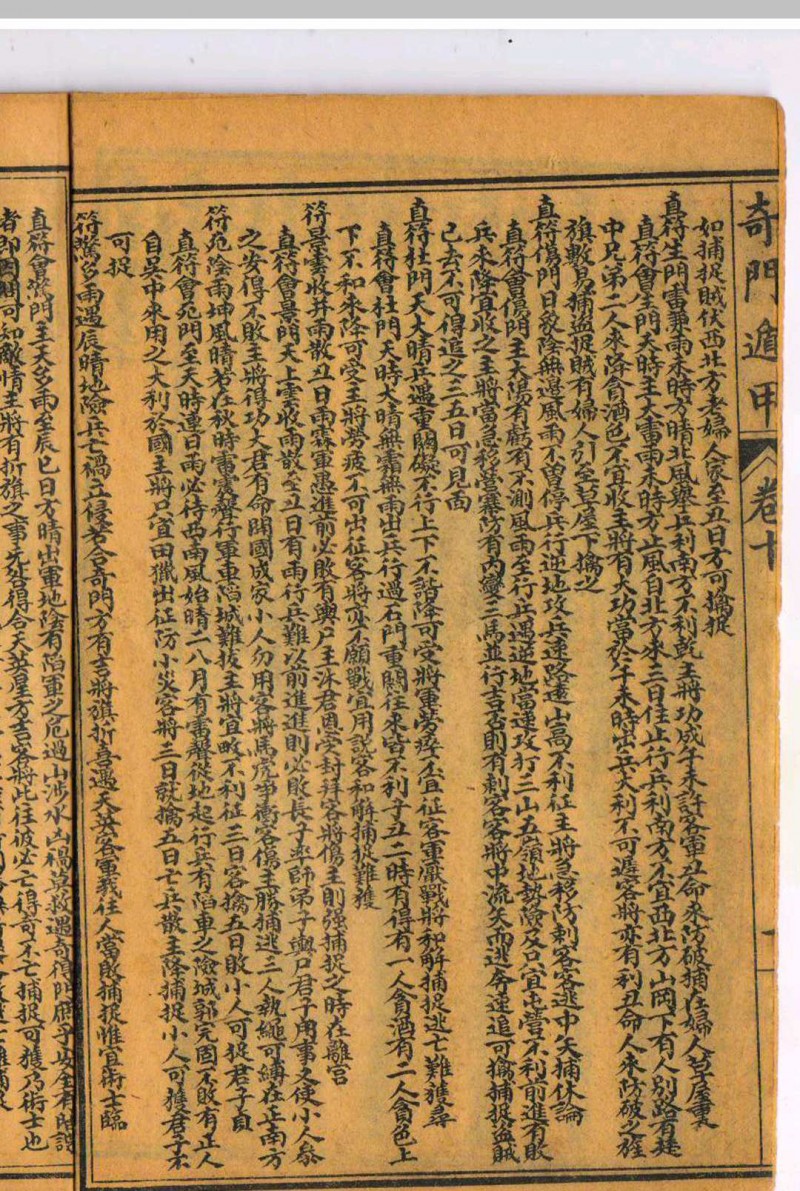 奇門遁甲 卷十
如捕捉賊伏西北方老婦人家至丑日方可擒捉
真符生門雷兼雨未時方晴北風舉兵利南方不利乾主將功成午未許客軍丑命來防破捕在婦人草屋裏
真符會生門天時主大雷雨未時方止風自北方來三日住止行兵利南方不宜西北方山岡下有人別路有
中兄弟二人來降貪酒色不宜收主將有大功當於午未時出兵大利不可遲客將亦有利丑命人來防破之旌
旗數易捕盜捉賊有婦人引至草屋下擒之
真符傷門日象陰無邊風雨不曾停兵行逆地攻兵速路遠山高不利征主將急移防刺客客逃中矢捕休論
真符會傷門主太陽有虧有不測風雨至行兵遇逆地當速攻打三山五嶺地勢險及只宜屯營不利前進有敗
兵來降宜收之主將當急移營寨防有內變三馬並行吉否則有刺客客將中流矢而逃奔速追可擒捕捉盜賊
已去不可得追之三五日可見面
真符杜門天大晴兵遇重關礙不行上下不諧降可受將軍勞瘁不宜征客軍厭戰將和解捕捉逃亡難獲尋
真符會杜門天時大晴無霜無雨出兵行過石門重關往來皆不利子丑二時有得有一人貪酒有二人貪色上
下不和來降可受主將勞疲不可出征客將亦不願戰宜用說客和解捕捉難獲
符景雲收并雨散丑日雨霖軍愚進前必敗有輿尸主沐君恩受封拜客將傷主則强捕捉之時在離宮
真符會景門天上雲收雨散至丑日有雨行兵難以前進進則必敗長子率師弟子輿尸君子用事又使小人參
之安得不敗主將得功大君有命開國成家小人勿用客將馬虎爭衝客傷主勝捕逃三人執繩可縛在正南方
符死陰雨坤風晴若在秋時雷霧聲行軍車陷城難拔主將宜畋不利征三日客擒五日敗小人可捉君子貞
真符會死門至天時連日雨必待西南風始晴二八月有雷聲從地起行兵有陷車之險城郭完固不敗有正人
自吳中來用之大利於國主將只宜田獵出征防小災客將三日就擒五日亡兵散主降捕捉小人可獲君子不
可捉
符驚多雨遇辰晴地險兵亡禍立侵若合奇門方有吉將旗折喜遇天英客軍我往人當敗捕捉惟宜術士臨
真符會驚門主天多雨至辰巳日方晴出軍地陰有陷軍之危過山涉水凶禍莫救遇奇得門庶乎安全有暗說
者即因間可知敵情主將有折旗之事先咎得合天英星方吉客將此往彼必亡得奇不亡捕捉可獲乃術士也